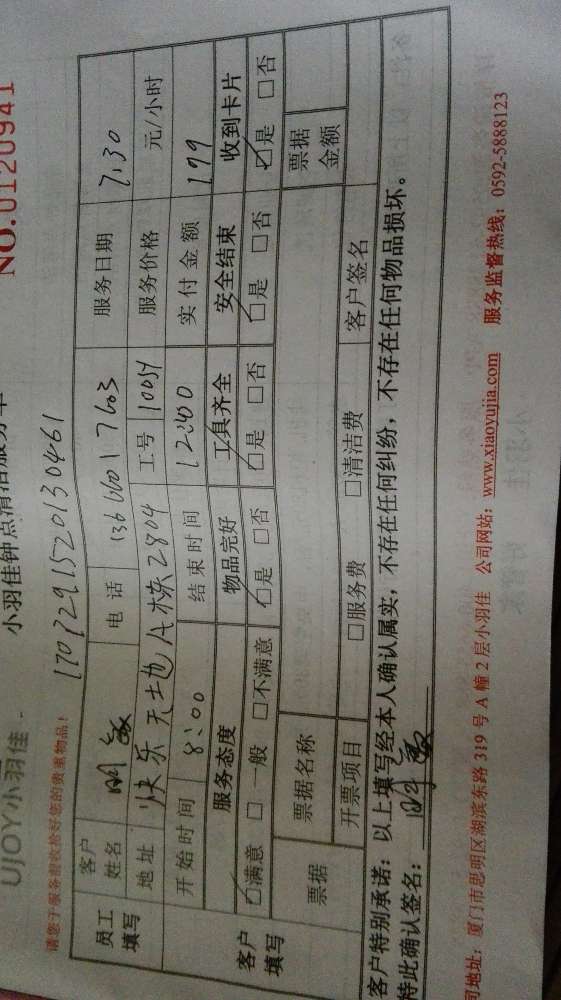 UJOY小羽佳 小羽佳钟点清洁服务卡 NO.0120941
请您于服务前收拾好您的贵重物品! 1707291520130461
员工填写 客户姓名 电话 13666017603 服务日期 7.30
地址 快乐天地A栋2804 工号 服务价格 元/小时
客户填写 开始时间 8:00 结束时间 12:00 实付金额 199
服务态度 物品完好 工具齐全 安全结束 收到卡片
☑满意 □一般 □不满意 ☑是 □否 ☑是 □否 ☑是 □否 ☑是 □否
票据 票据名称 票据金额
开票项目 □服务费 □清洁费 客户签名
客户特别承诺:以上填写经本人确认属实,不存在任何纠纷,不存在任何物品损坏。
特此确认签名:
司地址:厦门市思明区湖滨东路 319 号 A 幢 2 层小羽佳 公司网站:www.xiaoyujia.com 服务监督热线:0592-5888123